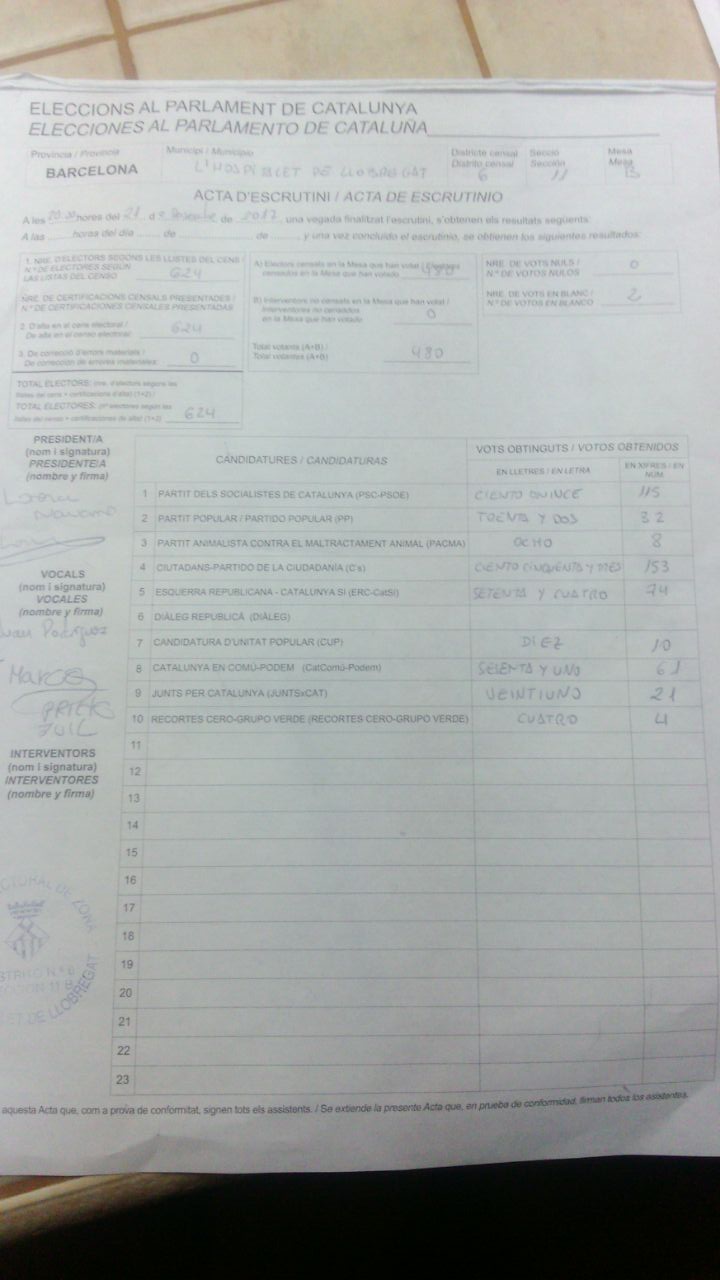 ELECCIONS AL PARLAMENT DE CATALUNYA
ELECCIONES AL PARLAMENTO DE CATALUÑA
Provincia / Provincia
BARCELONA
Municipi / Municipio
L'HOSPITALET DE LLOBREGAT
Districte censal
Distrito censal
6
Secció
Sección
11
Mesa
Mesa
B
ACTA D'ESCRUTINI / ACTA DE ESCRUTINIO
A les 20.00 hores del 21 d de 2017 una vegada finalitzat l'escrutini, s'obtenen els resultats següents:
A las ........ horas del día ........ de ........ de ........, y una vez concluido el escrutinio, se obtienen los siguientes resultados:
1. NRE. D'ELECTORS SEGONS LES LLISTES DEL CENS /
N.º DE ELECTORES SEGÚN
LAS LISTAS DEL CENSO 624
NRE. DE CERTIFICACIONS CENSALS PRESENTADES /
N.º CERTIFICACIONES CENSALES PRESENTADAS
2. D'alta en el cens electoral /
De alta en el censo electoral: 624
3. De correcció d'errors materials /
De corrección de errores materiales: 0
TOTAL ELECTORS: (nre. d'electors segons les
llistes del cens + certificacions d'alta) (1+2) /
TOTAL ELECTORES: (nº electores según las
listas del censo + certificaciones de alta) (1+2) 624
A) Electors censats en la Mesa que han votat / Electores
censados en la Mesa que han votado 480
B) Interventors no censats en la Mesa que han votat /
Interventores no censados
en la Mesa que han votado 0
Total votants (A+B) /
Total votantes (A+B) 480
NRE. DE VOTS NULS /
N.º DE VOTOS NULOS 0
NRE. DE VOTS EN BLANC /
N.º DE VOTOS EN BLANCO 2
PRESIDENT/A
(nom i signatura)
PRESIDENTE/A
(nombre y firma)
Lorena
Navarro
VOCALS
(nom i signatura)
VOCALES
(nombre y firma)
Juan Rodríguez
INTERVENTORS
(nom i signatura)
INTERVENTORES
(nombre y firma)
CANDIDATURES / CANDIDATURAS
VOTS OBTINGUTS / VOTOS OBTENIDOS
EN LLETRES / EN LETRA
EN XIFRES / EN NÚM.
1 PARTIT DELS SOCIALISTES DE CATALUNYA (PSC-PSOE) CIENTO QUINCE 115
2 PARTIT POPULAR / PARTIDO POPULAR (PP) TREINTA Y DOS 32
3 PARTIT ANIMALISTA CONTRA EL MALTRACTAMENT ANIMAL (PACMA) OCHO 8
4 CIUTADANS-PARTIDO DE LA CIUDADANÍA (C's) CIENTO CINQUENTA Y TRES 153
5 ESQUERRA REPUBLICANA - CATALUNYA SÍ (ERC-CatSí) SETENTA Y CUATRO 74
6 DIÀLEG REPUBLICÀ (DIÀLEG)
7 CANDIDATURA D'UNITAT POPULAR (CUP) DIEZ 10
8 CATALUNYA EN COMÚ-PODEM (CatComú-Podem) SESENTA Y UNO 61
9 JUNTS PER CATALUNYA (JUNTSxCAT) VEINTIUNO 21
10 RECORTES CERO-GRUPO VERDE (RECORTES CERO-GRUPO VERDE) CUATRO 4
11
12
13
14
15
16
17
18
19
20
21
22
23
aquesta Acta que, com a prova de conformitat, signen tots els assistents. / Se extiende la presente Acta que, en prueba de conformidad, firman todos los asistentes.